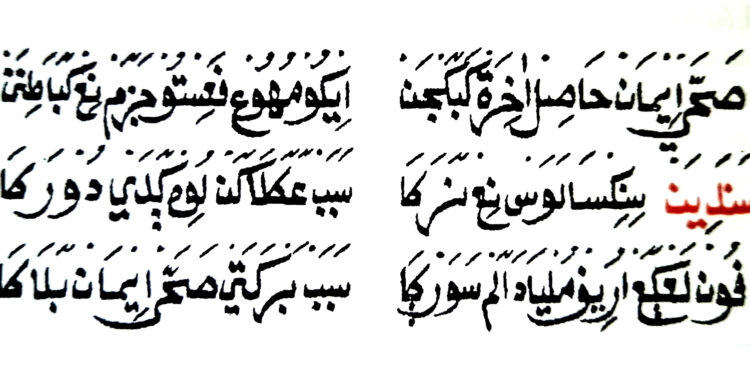 صَحَيْ اِيْمَانْ حَاصِلْ اٰخِرَةْ كَبَكْجَنْ اِيْكُوْ مُهُوْعْ فَعِسْتُوْ جَزْمْ نِعْ كَبَاطِنَنْ
سَنَدِيَنْ سِنِكْسَا لَوَسْ نِعْ نَرَكَا سَبَبْ عَكْلَاكَنْ لُوِهْ كَدَيْ دُوْرَكَا
فُوْنْ لَعْكَعْ اُرِيْفْ مُلْيَا دَالَمْ سَوَرْكَا سَبَبْ بَرْكَتَيْ صَحَيْ اِيْمَانْ بَلَاكَا